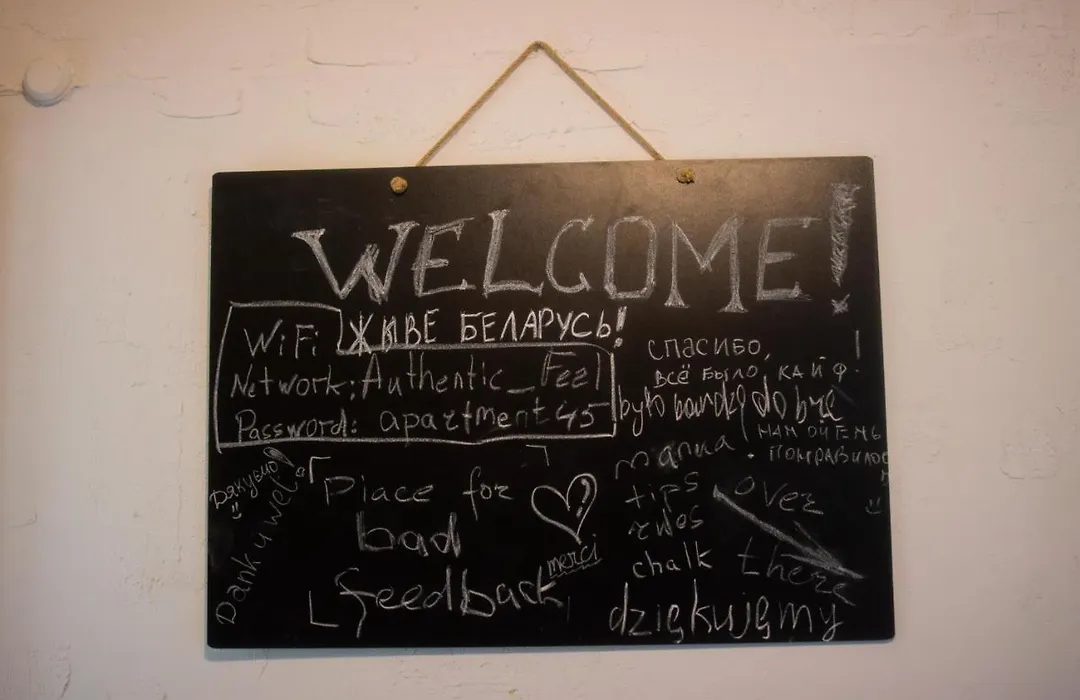 WELCOME!
WiFi
ЖЫВЕ БЕЛАРУСЬ!
Network: Authentic_Feel
Password: apartment45
СПАСИБО,
ВСЁ БЫЛО КАЙФ!
było bardzo dobrze
НАМ ОЧЕНЬ
ПОНРАВИЛОСЬ
Дякуємо!
Dank u wel
Place for
bad
feedback
merci
tips
chalk
over
there
dziękujęmy